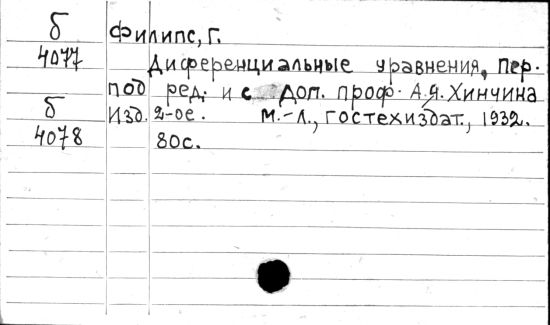 Б Филипс, Г.
4077 Диференциальные уравнения, Пер.
под ред. и с доп. проф. А.Я. Хинчина
Б Изд. 2-ое. М.-Л., Гостехиздат, 1932.
4078 80с.